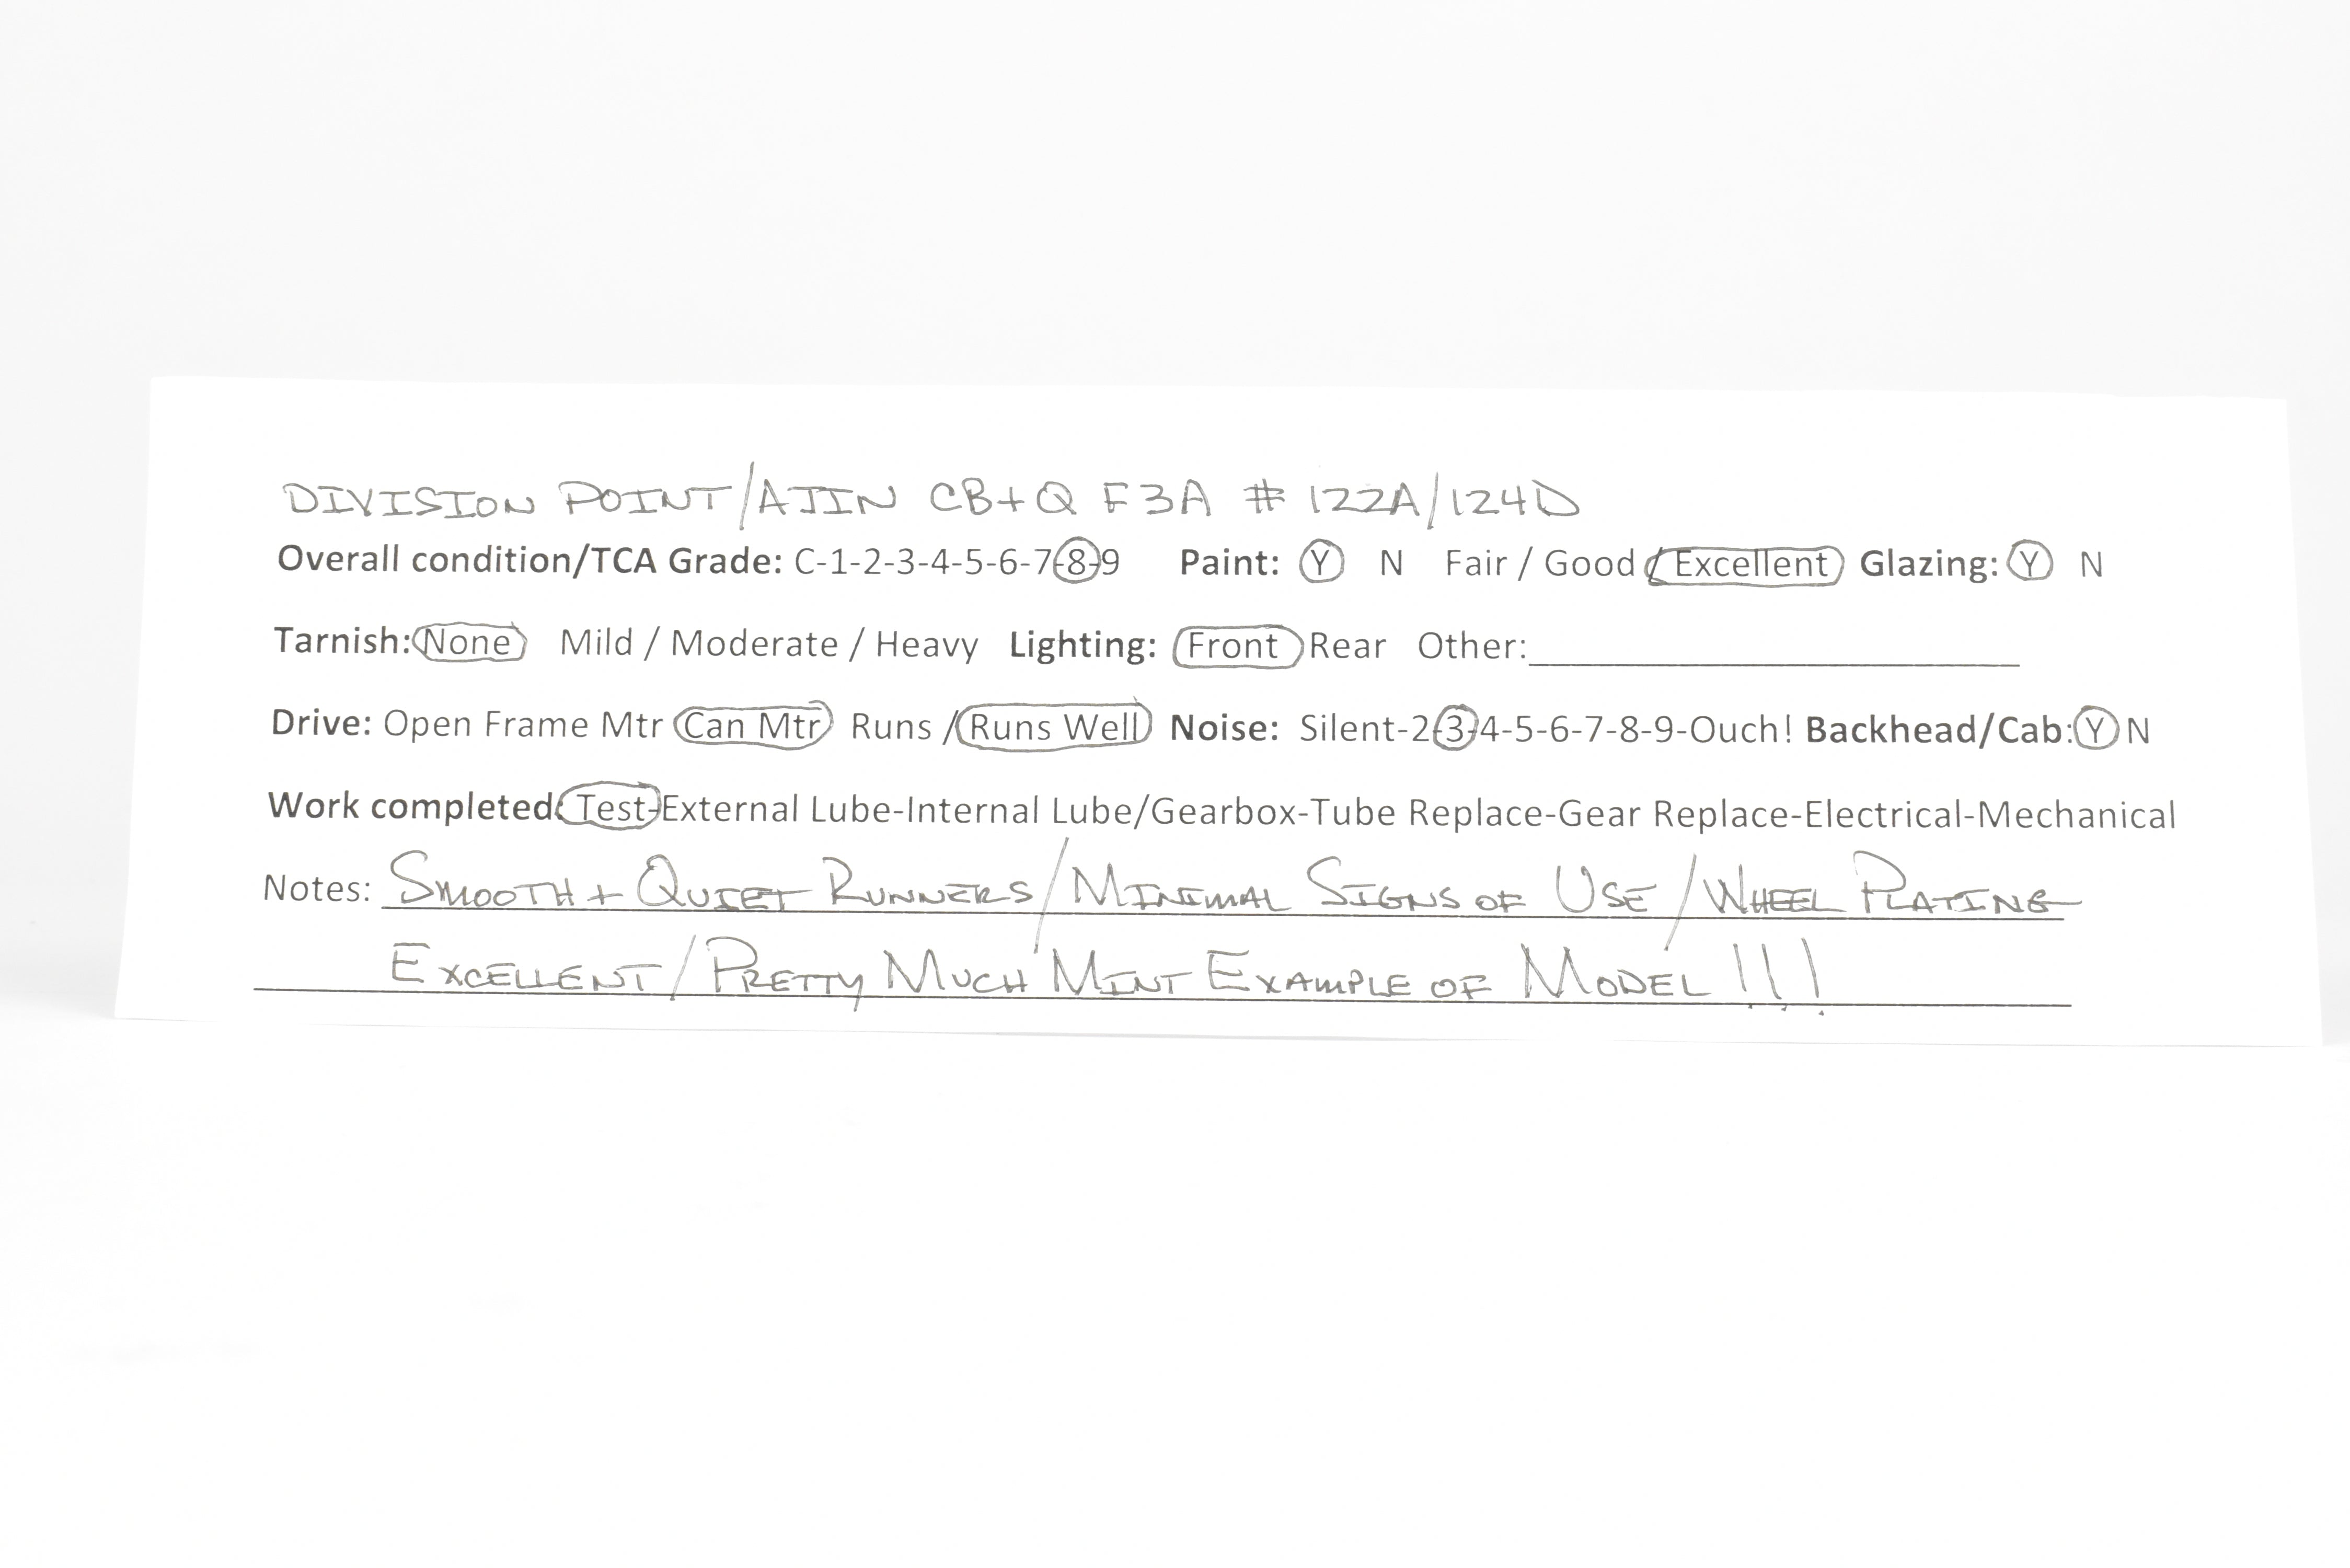 DIVISION POINT/AJIN CB+Q F3A # 122A/124D
Overall condition/TCA Grade: C-1-2-3-4-5-6-7-8-9 Paint: Y N Fair / Good / Excellent Glazing: Y N
Tarnish: None Mild / Moderate / Heavy Lighting: Front Rear Other:
Drive: Open Frame Mtr Can Mtr Runs / Runs Well Noise: Silent-2-3-4-5-6-7-8-9-Ouch! Backhead/Cab: Y N
Work completed: Test-External Lube-Internal Lube/Gearbox-Tube Replace-Gear Replace-Electrical-Mechanical
Notes: SMOOTH + QUIET RUNNERS/MINIMAL SIGNS OF USE/WHEEL PLATING
EXCELLENT/PRETTY MUCH MINT EXAMPLE OF MODEL!!!